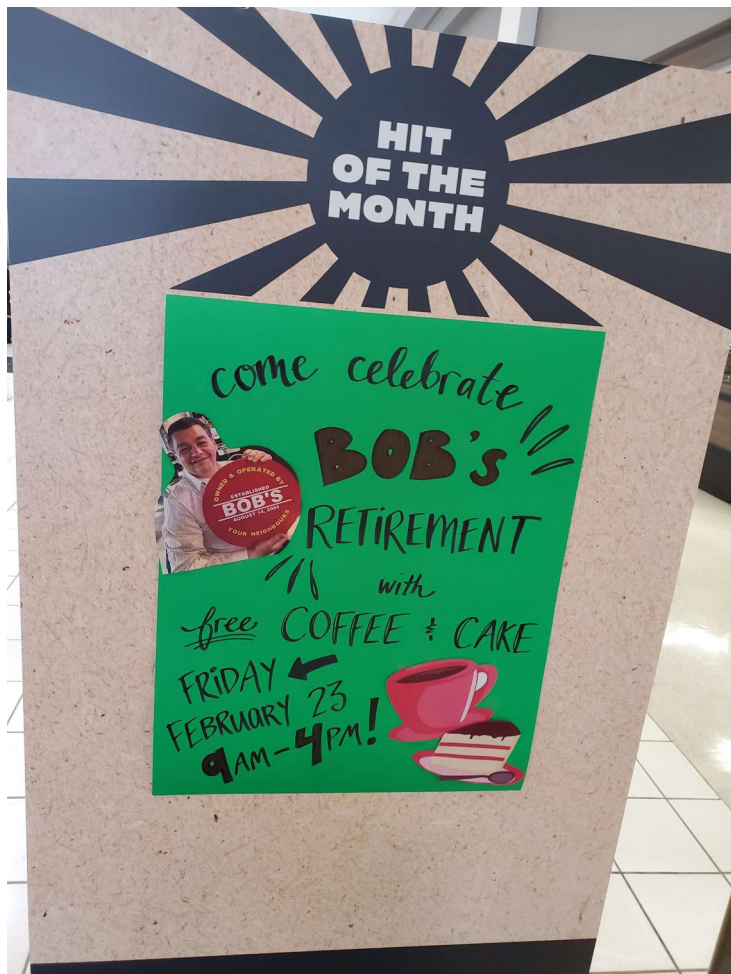 HIT
OF THE
MONTH
come celebrate
BOB's
OWNED & OPERATED BY
ESTABLISHED
BOB'S
AUGUST 14, 2003
YOUR NEIGHBOURS
RETiREMENT
with
free COFFEE & CAKE
FRiDAY
FEBRUARY 23
9AM-4PM!